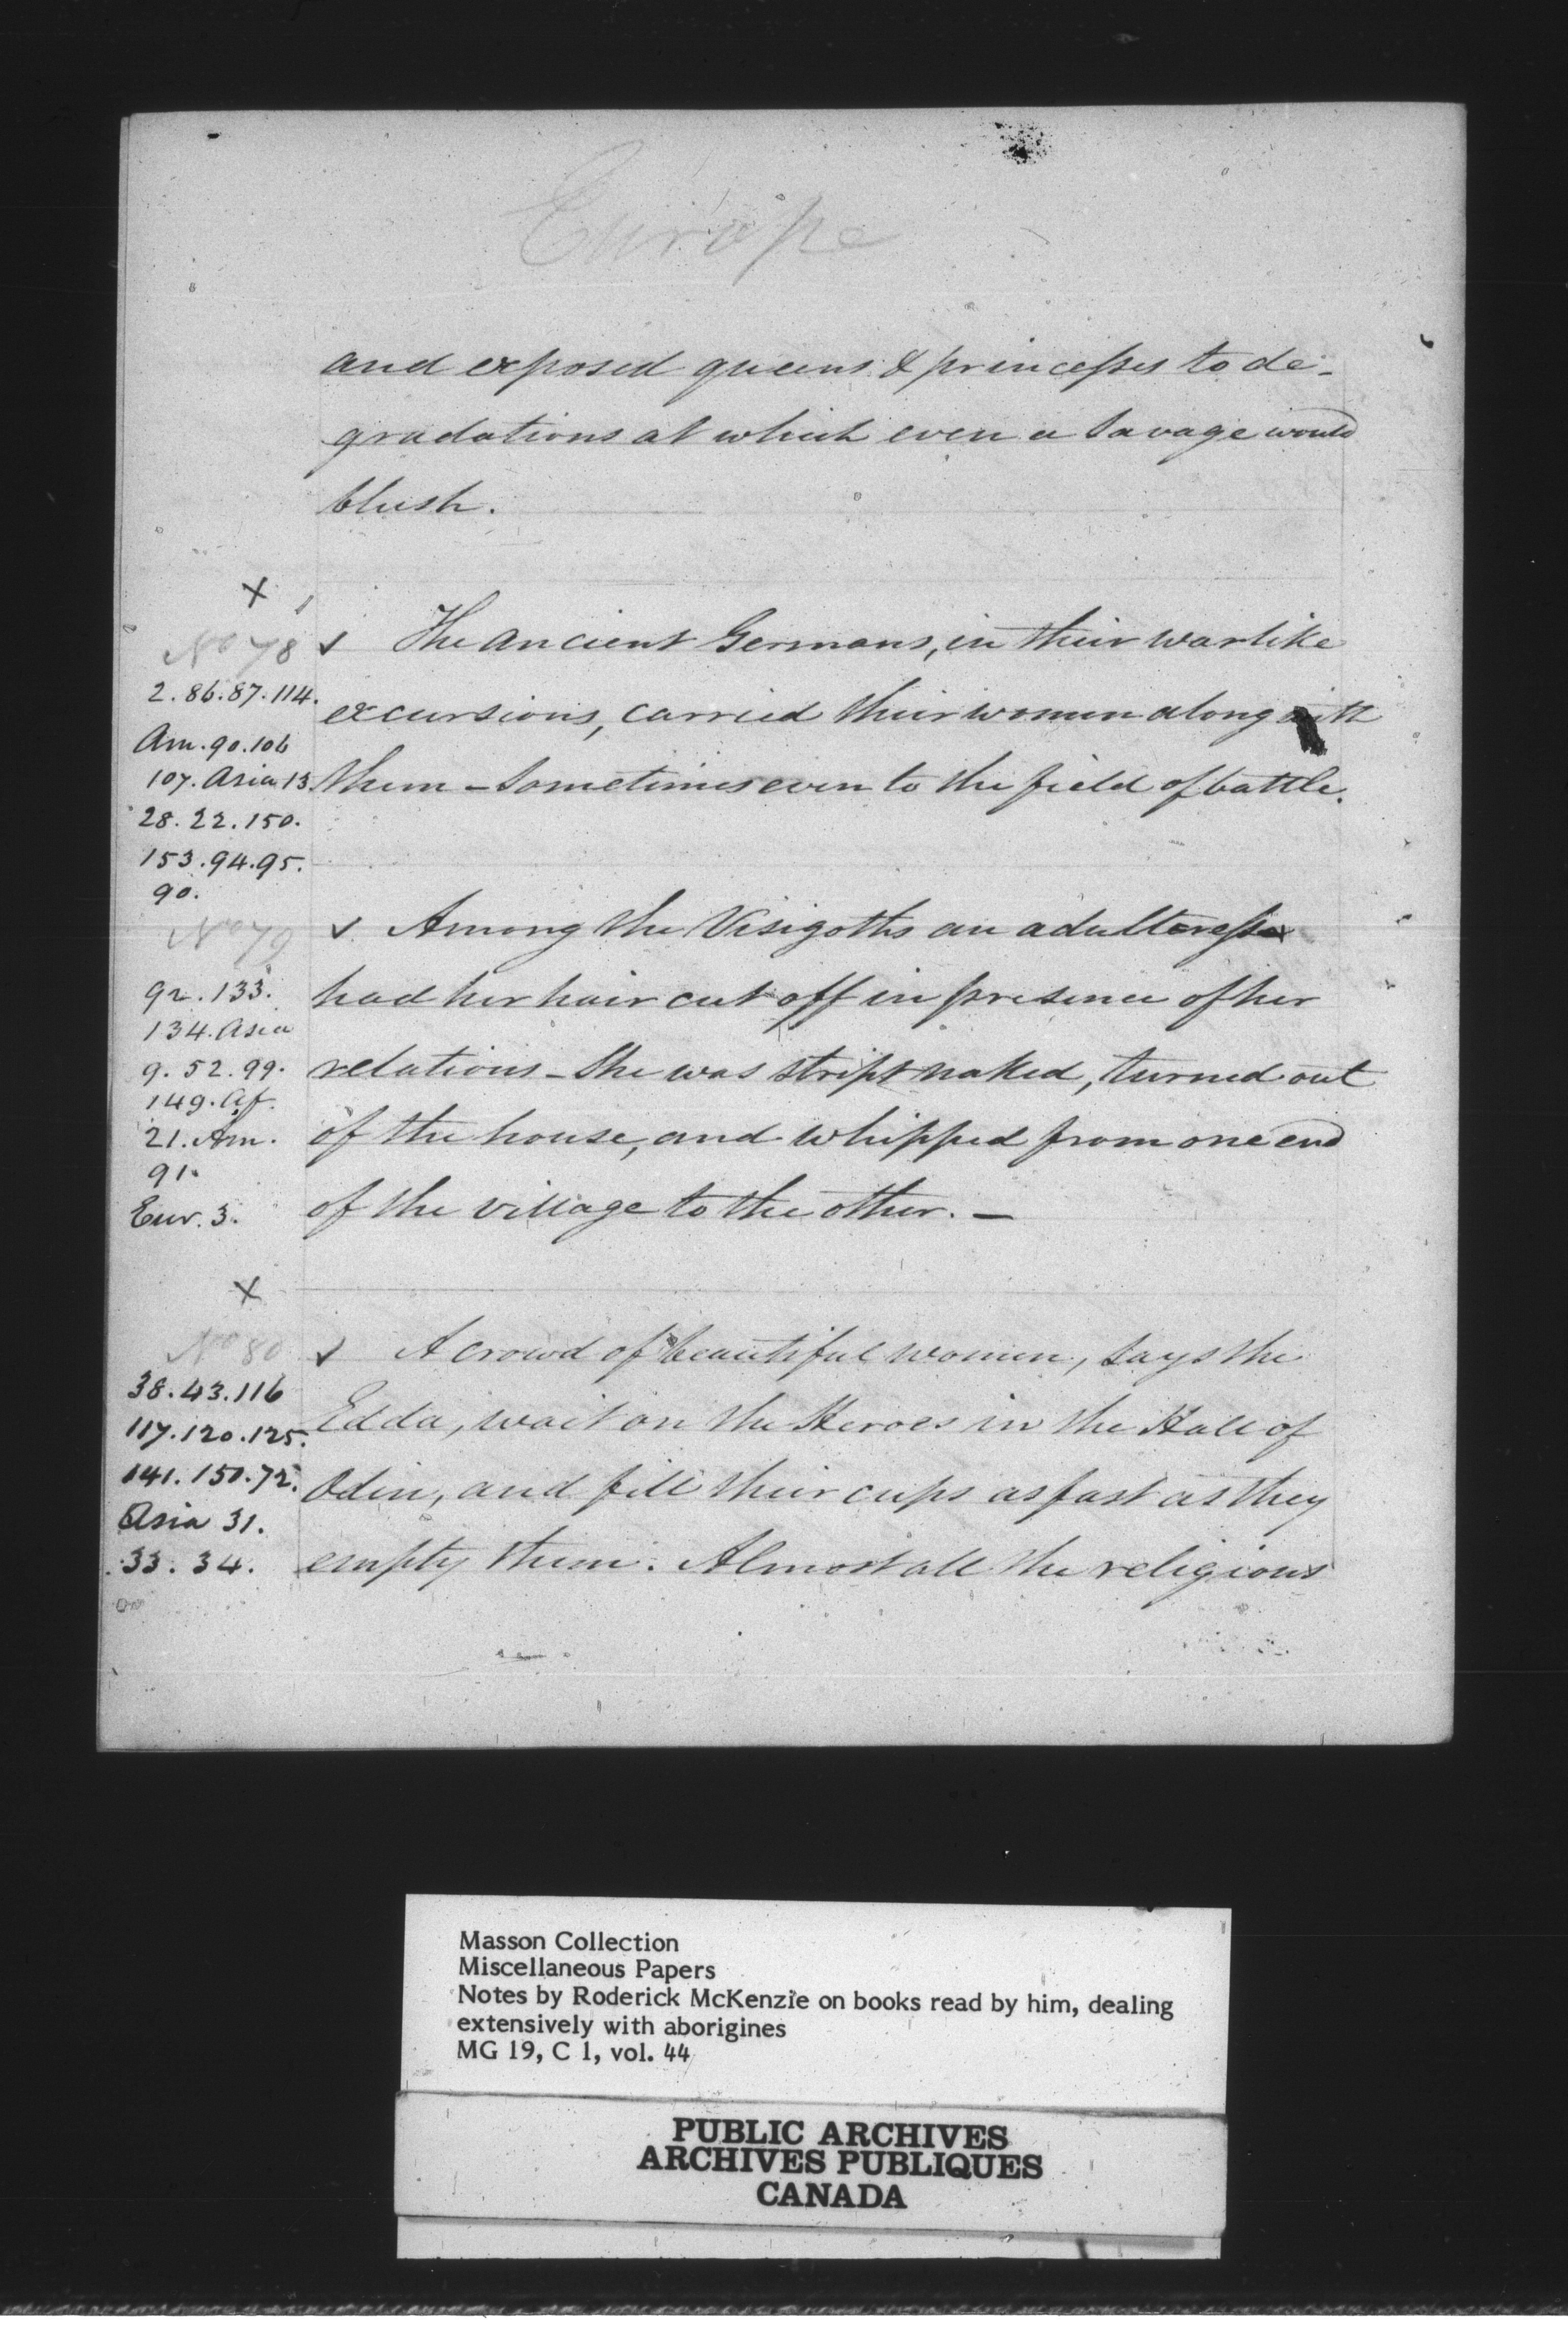 Europe
and exposed queens & princesses to de-
gradations at which even a Savage would
blush.
x
No 78
2. 86. 87. 114.
Am. 90. 106
107. Asia 13.
28. 22. 150.
153. 94. 95.
90.
✓ The ancient Germans, in their warlike
excursions, carried their women along with
them - Sometimes even to the field of battle.
No 79
92. 133.
134. Asia
9. 52. 99.
149. Af.
21. Am.
91.
Eur. 3.
✓ Among the Visigoths an adulteress
had her hair cut off in presence of her
relations - She was stript naked, turned out
of the house, and whipped from one end
of the village to the other. -
x
No 80
38. 43. 116
117. 120. 125.
141. 150. 72.
Asia 31.
33. 34.
✓ A crowd of beautiful women, says the
Edda, wait on the Heroes in the Hall of
Odin, and fill their cups as fast as they
empty them. Almost all the religious
Masson Collection
Miscellaneous Papers
Notes by Roderick McKenzie on books read by him, dealing
extensively with aborigines
MG 19, C 1, vol. 44
PUBLIC ARCHIVES
ARCHIVES PUBLIQUES
CANADA